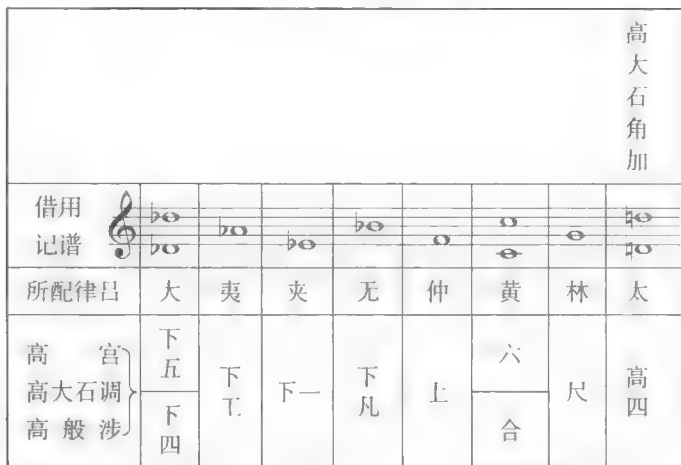 高大石角加
借用
记谱
所配律吕 大 夷 夹 无 仲 黄 林 太
高宫
高大石调
高般涉
下五
下四
下工
下一
下凡
上
六
合
尺
高四